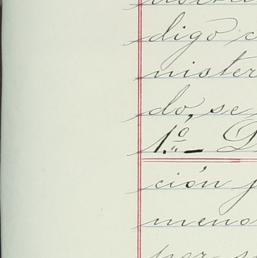 digo c
nister
do, se
1.º - D
ción p
meno